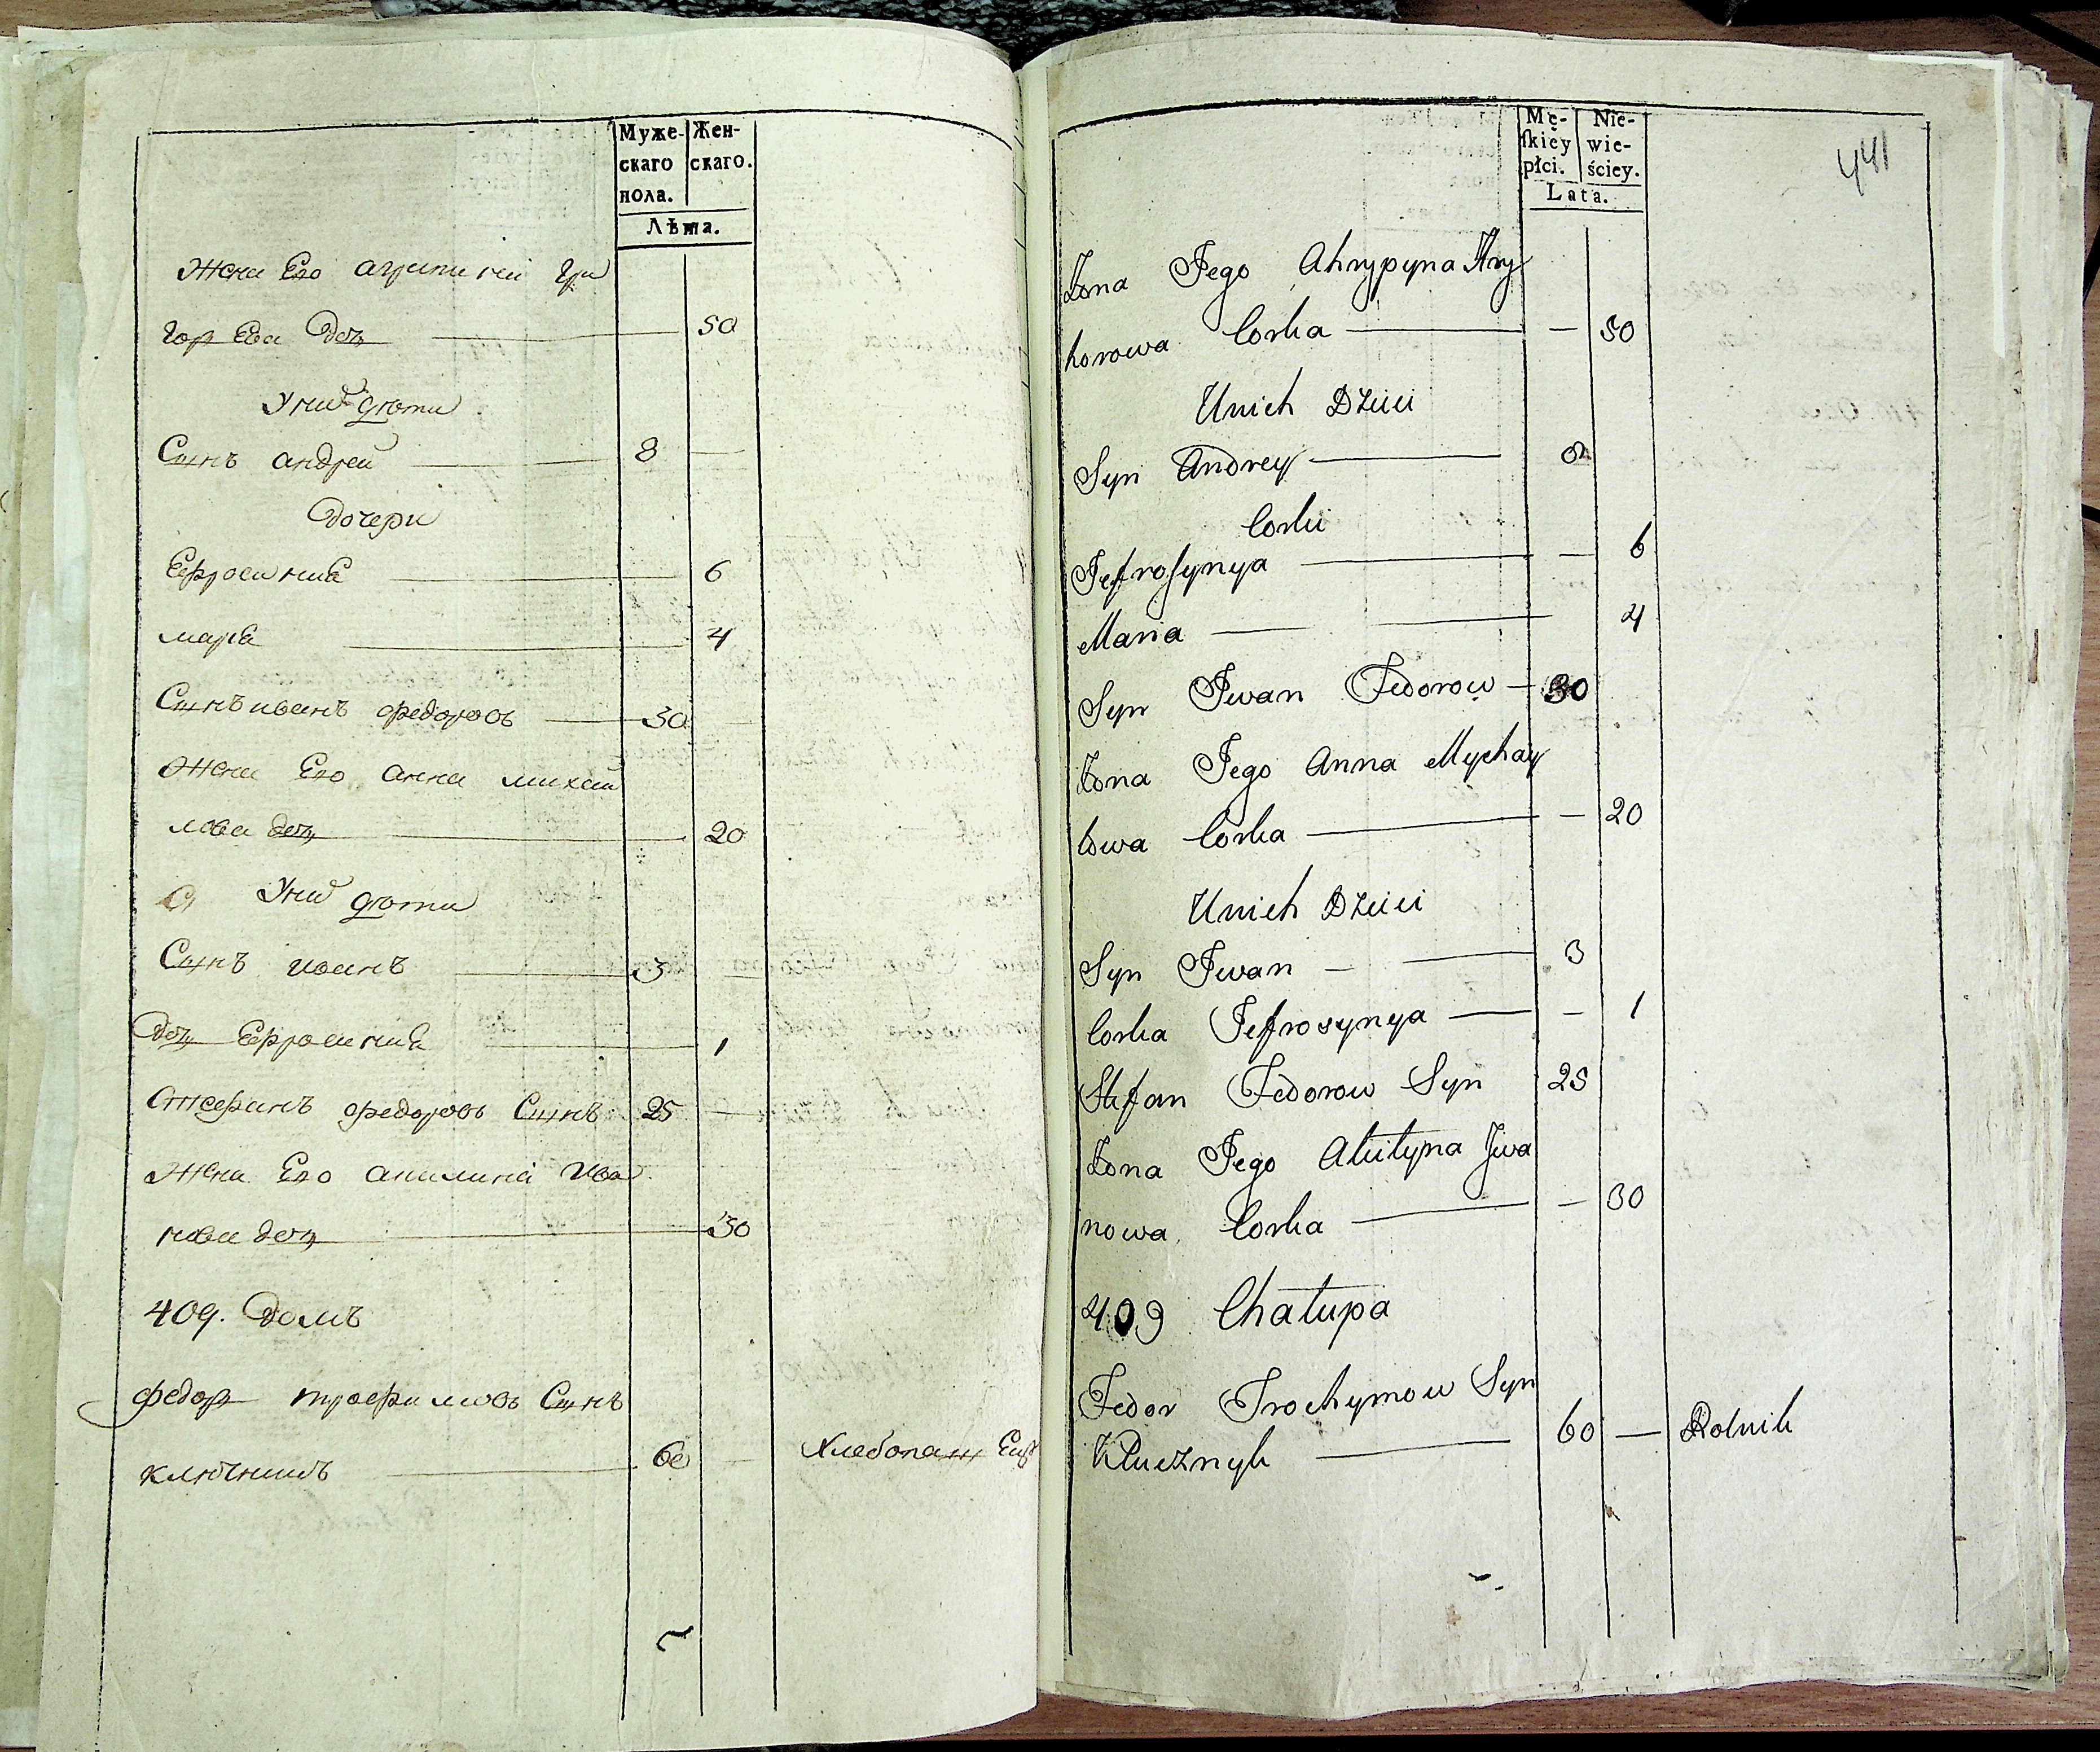 Муже-
скаго
пола.
Жен-
скаго.
Лѣта.
Жена Его агрипина гри
гор Ева дочь 50
У них дѣти
Сынъ андрей 8 —
Дочери
Ефросиниа 6
мариа 4
Сынъ иванъ федоровъ 30
Жена Его анна михай
лова дочь 20
У них дѣти
Сынъ иванъ 3
Дочь Ефросиниа 1
Стефанъ федоровъ Сынъ 25 —
Жена Его акилина Ива
нова дочь 30
409. Домъ
федор трофимовъ Сынъ
ключникъ 60 — Хлебопашец
Mę-
ſkiey
płci.
Nie-
wie-
ściey.
Lata.
441
Żona Jego Ahrypyna Hry
horowa Corka — 50
Unich Dzieci
Syn Andrey 8
Corki
Jefroſynya — 6
Maria 4
Syn Jwan Fedorow 30
Żona Jego Anna Mychay
łowa Corka — 20
Unich Dzieci
Syn Jwan 3
Corka Jefrosynya — 1
Stefan Fedorow Syn 25
Żona Jego Akilyna Jwa
nowa Corka — 30
409 Chałupa
Fedor Trochymow Syn
Klucznyk 60 — Rolnik